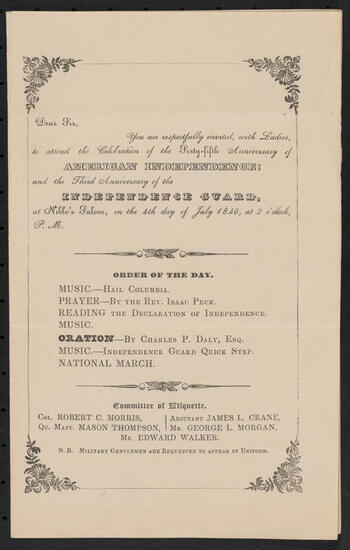 Dear Sir,
You are respectfully invited, with Ladies,
to attend the Celebration of the Sixty-fifth Anniversary of
AMERICAN INDEPENDENCE;
and the Third Anniversary of the
INDEPENDENCE GUARD,
at Niblo's Saloon, on the 4th day of July 1840, at 2 o'clock,
P. M.
ORDER OF THE DAY.
MUSIC.—Hail Columbia.
PRAYER—By the Rev. Isaac Peck.
READING the Declaration of Independence.
MUSIC.
ORATION—By Charles P. Daly, Esq.
MUSIC.—Independence Guard Quick Step.
NATIONAL MARCH.
Committee of Etiquette.
Col. ROBERT C. MORRIS, Adjutant JAMES L. CRANE,
Qu. Mast. MASON THOMPSON, Mr. GEORGE L. MORGAN,
Mr. EDWARD WALKER.
N. B. Military Gentlemen are Requested to appear in Uniform.